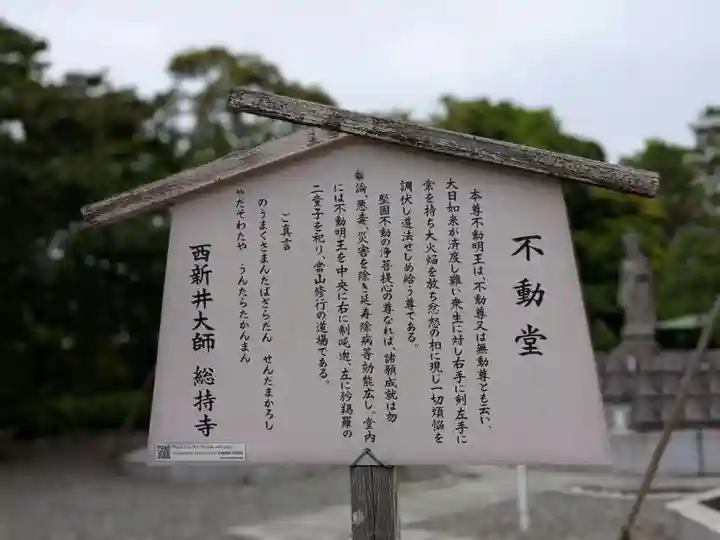 不動堂
本尊不動明王は、不動尊又は無動尊とも云い、
大日如来が済度し難い衆生に対し右手に剣左手に
索を持ち大火焔を放ち忿怒の相に現し一切煩悩を
調伏し遵法せしめ給う尊である。
堅固不動の浄菩提心の尊なれば、諸願成就は勿
論、悪毒、災害を除き延寿除病等効能広し。堂内
には不動明王を中央に右に制吒迦、左に矜羯羅の
二童子を祀り、當山修行の道場である。
ご真言
のうまくさまんたばざらだん せんだまかろし
やだそわたや うんたらたかんまん
西新井大師 総持寺